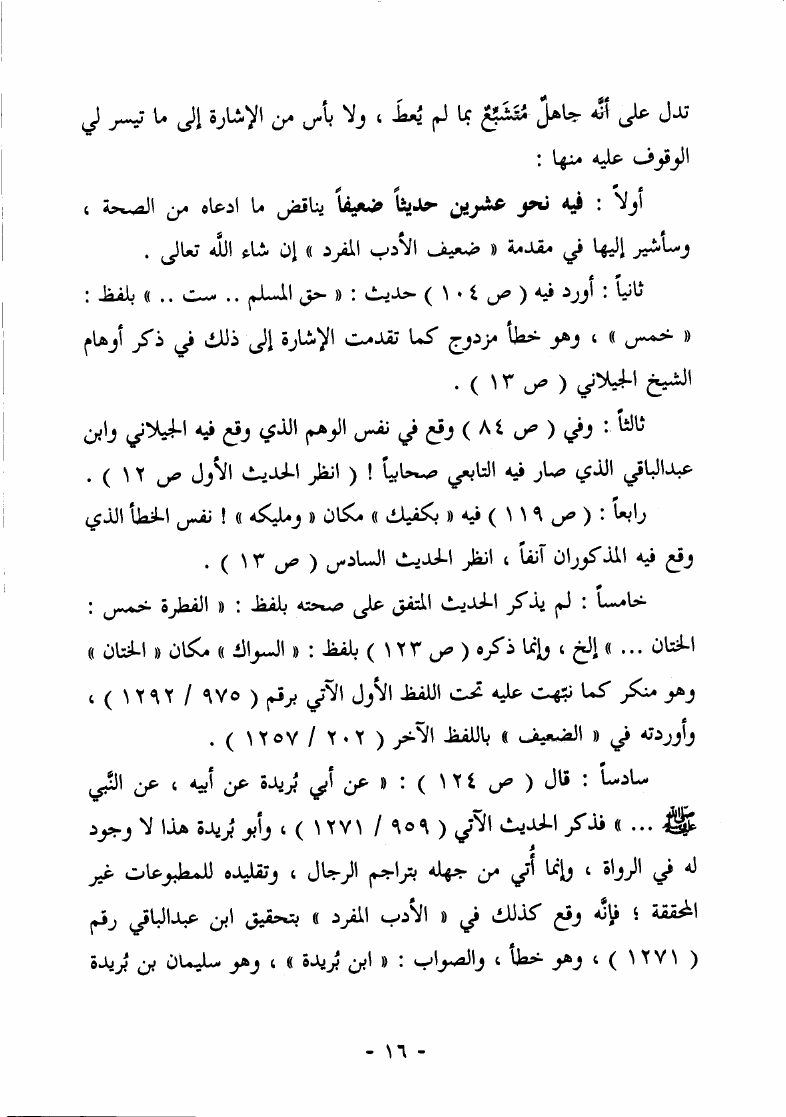 تدل على أنَّه جاهلٌ مُتَشَبِّعٌ بما لم يُعطَ ، ولا بأس من الإشارة إلى ما تيسر لي
الوقوف عليه منها :
أولاً : فيه نحو عشرين حديثاً ضعيفاً يناقض ما ادعاه من الصحة ،
وسأشير إليها في مقدمة « ضعيف الأدب المفرد » إن شاء اللَّه تعالى .
ثانياً : أورد فيه ( ص ١٠٤ ) حديث : « حق المسلم .. ست .. » بلفظ :
« خمس » ، وهو خطأ مزدوج كما تقدمت الإشارة إلى ذلك في ذكر أوهام
الشيخ الجيلاني ( ص ١٣ ) .
ثالثاً : وفي ( ص ٨٤ ) وقع في نفس الوهم الذي وقع فيه الجيلاني وابن
عبدالباقي الذي صار فيه التابعي صحابياً ! ( انظر الحديث الأول ص ١٢ ) .
رابعاً : ( ص ١١٩ ) فيه « بكفيك » مكان « ومليكه » ! نفس الخطأ الذي
وقع فيه المذكوران آنفاً ، انظر الحديث السادس ( ص ١٣ ) .
خامساً : لم يذكر الحديث المتفق على صحته بلفظ : « الفطرة خمس :
الختان ... » إلخ ، وإنما ذكره ( ص ١٢٣ ) بلفظ : « السواك » مكان « الختان »
وهو منكر كما نبَّهت عليه تحت اللفظ الأول الآتي برقم ( ٩٧٥ / ١٢٩٢ ) ،
وأوردته في « الضعيف » باللفظ الآخر ( ٢٠٢ / ١٢٥٧ ) .
سادساً : قال ( ص ١٢٤ ) : « عن أبي بُريدة عن أبيه ، عن النَّبي
ﷺ ... » فذكر الحديث الآتي ( ٩٥٩ / ١٢٧١ ) ، وأبو بُريدة هذا لا وجود
له في الرواة ، وإنما أُتي من جهله بتراجم الرجال ، وتقليده للمطبوعات غير
المحققة ؛ فإنَّه وقع كذلك في « الأدب المفرد » بتحقيق ابن عبدالباقي رقم
( ١٢٧١ ) ، وهو خطأ ، والصواب : « ابن بُريدة » ، وهو سليمان بن بُريدة
- ١٦ -